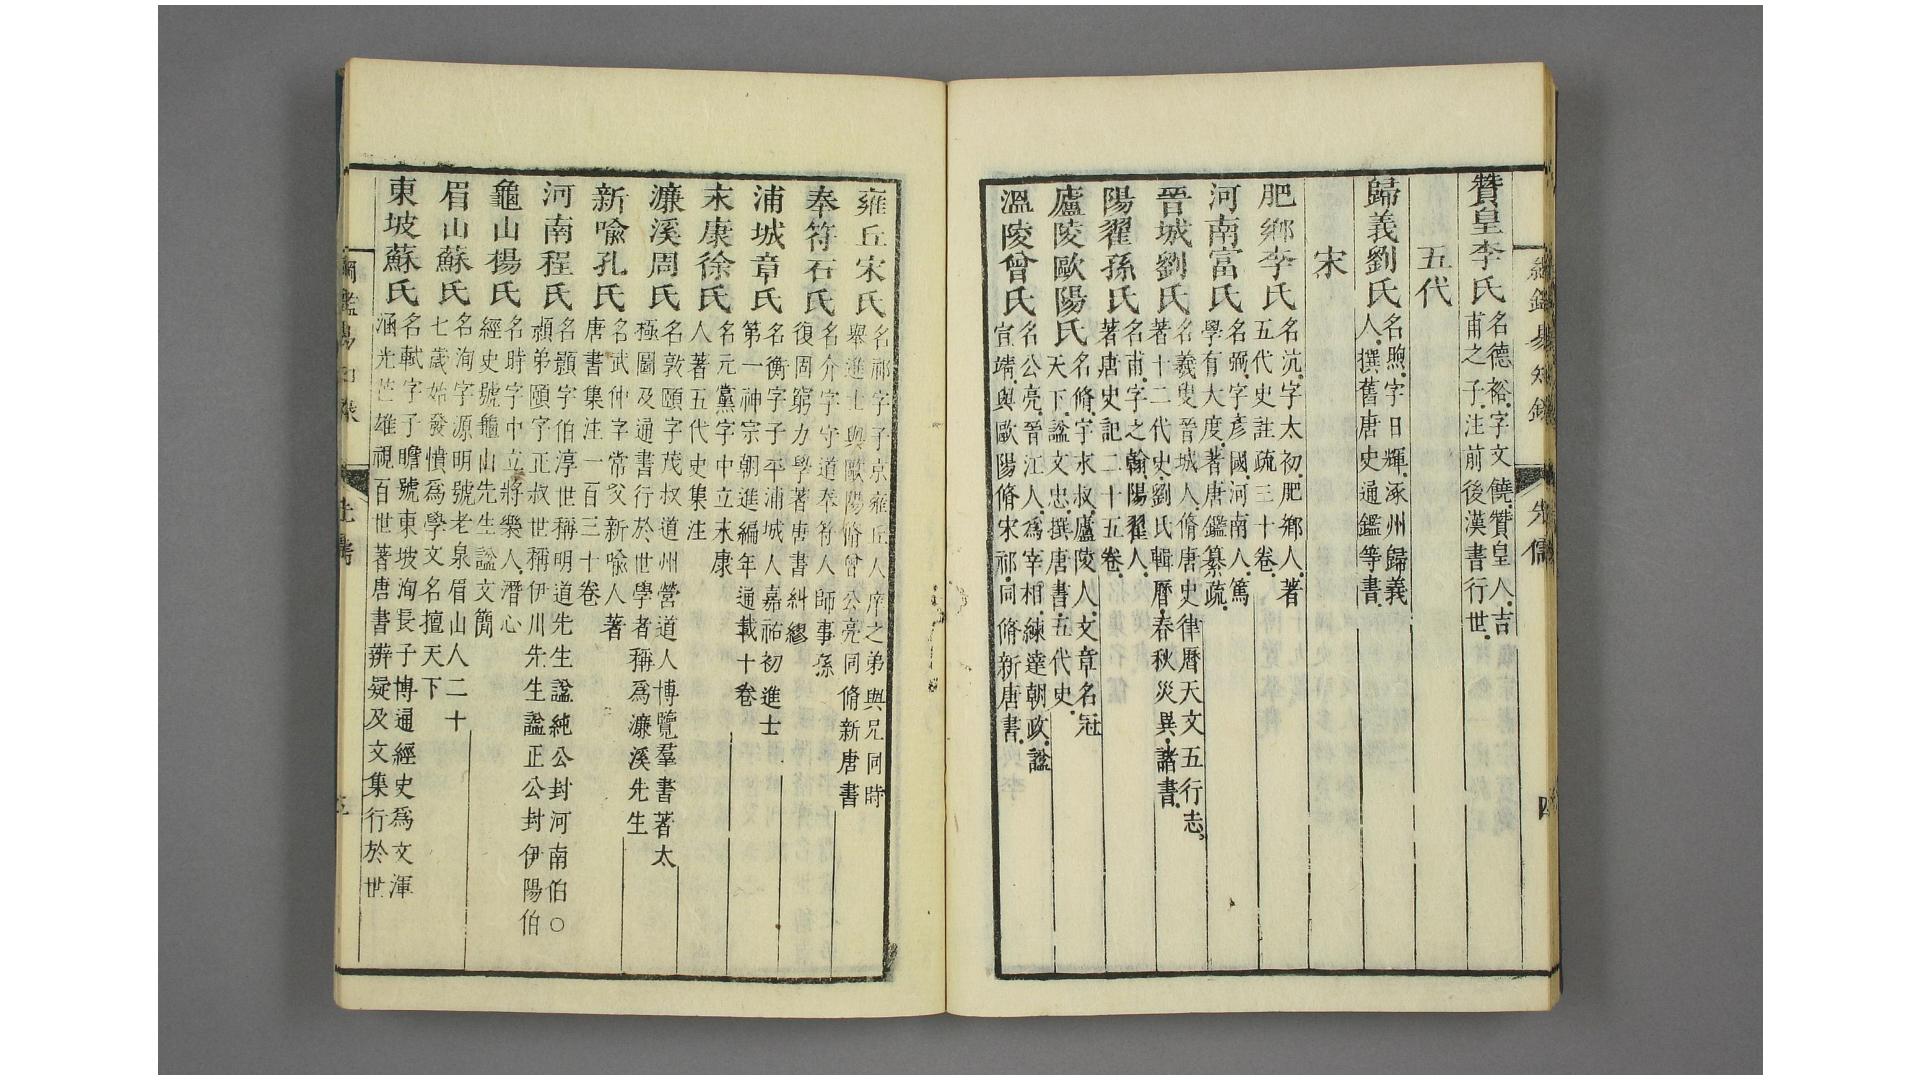 綱鑑易知錄
先儒
四
贊皇李氏
名德裕字文饒贊皇人吉
甫之子注前後漢書行世
五代
歸義劉氏
名煦字日輝涿州歸義
人撰舊唐史通鑑等書
宋
肥鄉李氏
名沆字太初肥鄉人著
五代史註疏三十卷
河南富氏
名弼字彥國河南人篤
學有大度著唐鑑纂疏
晉城劉氏
名羲叟晉城人脩唐史律曆天文五行志
著十二代史劉氏輯曆春秋災異諸書
陽翟孫氏
名甫字之翰陽翟人
著唐史記二十五卷
廬陵歐陽氏
名脩字永叔廬陵人文章名冠
天下諡文忠撰唐書五代史
溫陵曾氏
名公亮晉江人為宰相練達朝政諡
宣靖與歐陽脩宋祁同脩新唐書
雍丘宋氏
名祁字子京雍丘人庠之弟與兄同時
舉進士與歐陽脩曾公亮同脩新唐書
奉符石氏
名介字守道奉符人師事孫
復固窮力學著唐書糾繆
浦城章氏
名衡字子平浦城人嘉祐初進士
第一神宗朝進編年通載十卷
永康徐氏
名元黨字中立永康
人著五代史集注
濂溪周氏
名敦頤字茂叔道州營道人博覽羣書著太
極圖及通書行於世學者稱為濂溪先生
新喻孔氏
名武仲字常父新喻人著
唐書集注一百三十卷
河南程氏
名顥字伯淳世稱明道先生諡純公封河南伯○
顥弟頤字正叔世稱伊川先生諡正公封伊陽伯
龜山楊氏
名時字中立將樂人潛心
經史號龜山先生諡文簡
眉山蘇氏
名洵字源明號老泉眉山人二十
七歲始發憤為學文名擅天下
東坡蘇氏
名軾字子瞻號東坡洵長子博通經史為文渾
涵光芒雄視百世著唐書辨疑及文集行於世